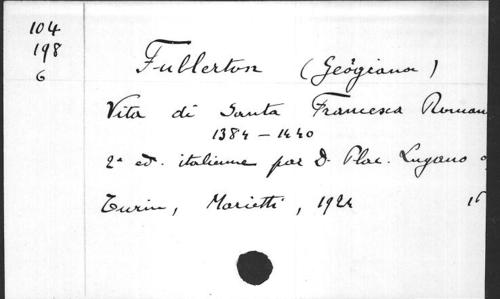 104
198
6
Fullerton (Geôgiana)
Vita di Santa Francesca Roman
1384 – 1440
2ª ed. italienne par D. Plac. Lugano
Turin, Marietti, 1924